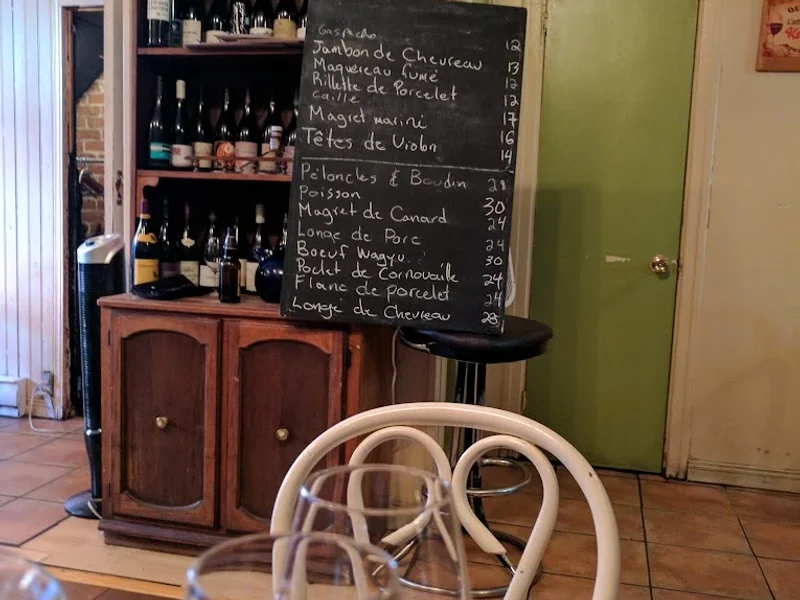 Gaspacho 12
Jambon de Chevreau 13
Maquereau fumé 12
Rillette de Porcelet 12
Caille 17
Magret mariné 16
Têtes de Violon 14
Pétoncles & Boudin 28
Poisson 30
Magret de Canard 24
Longe de Porc 24
Boeuf Wagyu 30
Poulet de Cornouaille 24
Flanc de porcelet 24
Longe de Chevreau 28